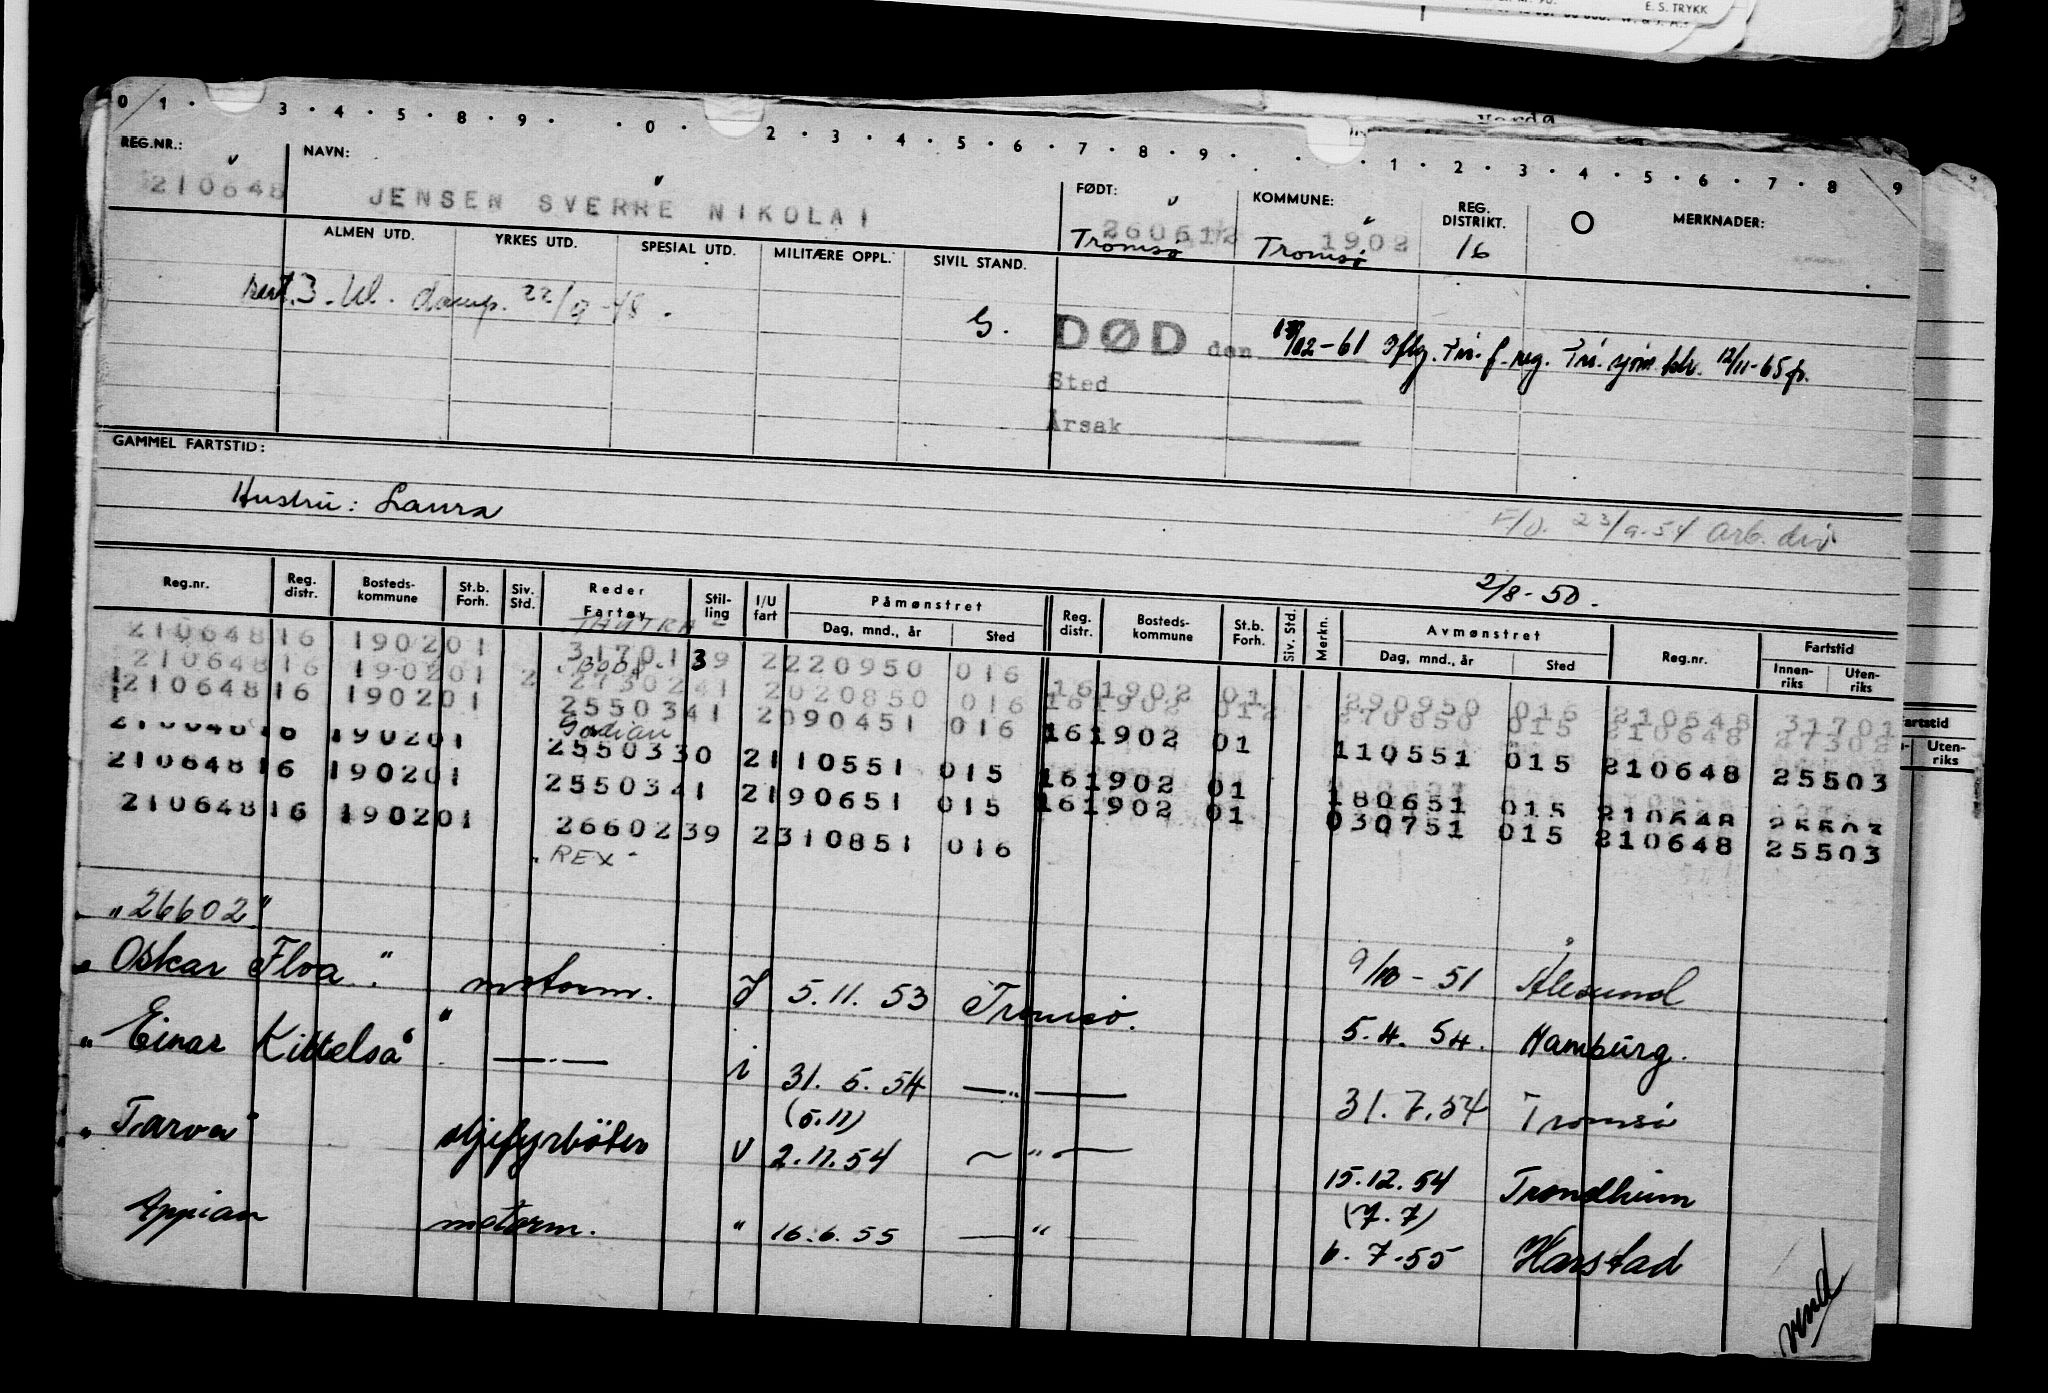 E. S. TRYKK
0 1 · 3 · 4 · 5 · 8 · 9 · · 0 · 2 · 3 · 4 · 5 · 6 · 7 · 8 · 9 · · 1 · 2 · 3 · 4 · 5 · 6 · 7 · 8 9
REG.NR.: NAVN: FØDT: KOMMUNE: REG. DISTRIKT. O MERKNADER:
210648 JENSEN SVERRE NIKOLAI 260612 1902
Tromsø Tromsø 16
ALMEN UTD. YRKES UTD. SPESIAL UTD. MILITÆRE OPPL. SIVIL STAND.
sert. 3. kl. damp. 22/9-48. G.
DØD den 12-61 Iflg. Tr. f. reg. 12/11-65
Sted
Årsak
GAMMEL FARTSTID:
Hustru: Laura
23/9-54 Arb. div
2/8-50.
Reg.nr. Reg. distr. Bosteds- kommune St.b. Forh. Siv. Std. Reder Fartøy Stil- ling I/U fart Påmønstret Dag, mnd., år Sted Reg. distr. Bosteds- kommune St.b. Forh. Siv. Std. Merkn. Avmønstret Dag, mnd., år Sted Reg.nr. Fartstid Innen- riks Uten- riks
TAUTRA
210648 16 1902 01 31701 39 2 220950 016
210648 16 1902 01 2 27302 41 2 020850 016 16 1902 01 290950 016 210648 31701
210648 16 1902 01 25503 41 2 090451 016 16 1902 01 270850 015 210648 27302
Godian
210648 16 1902 01 25503 30 2 110551 015 16 1902 01 110551 015 210648 25503
210648 16 1902 01 25503 41 2 190651 015 16 1902 01 180651 015 210648 25503
210648 16 1902 01 26602 39 2 310851 016 16 1902 01 030751 015 210648 25503
REX
"26602" 9/10-51 Ålesund
"Oskar Floa" motorm. I 5.11.53 Tromsø. 5.4.54. Hamburg.
"Einar Kittelsa" " —.— i 31.5.54 —"— 31.7.54 Tromsø
(5.11)
"Tarva" oljefyrbøter U 2.11.54 —"— 15.12.54 Trondheim
(7.7)
Appian motorm. " 16.6.55 —"— 6.7.55 Harstad
vend
Fartstid
Uten- riks